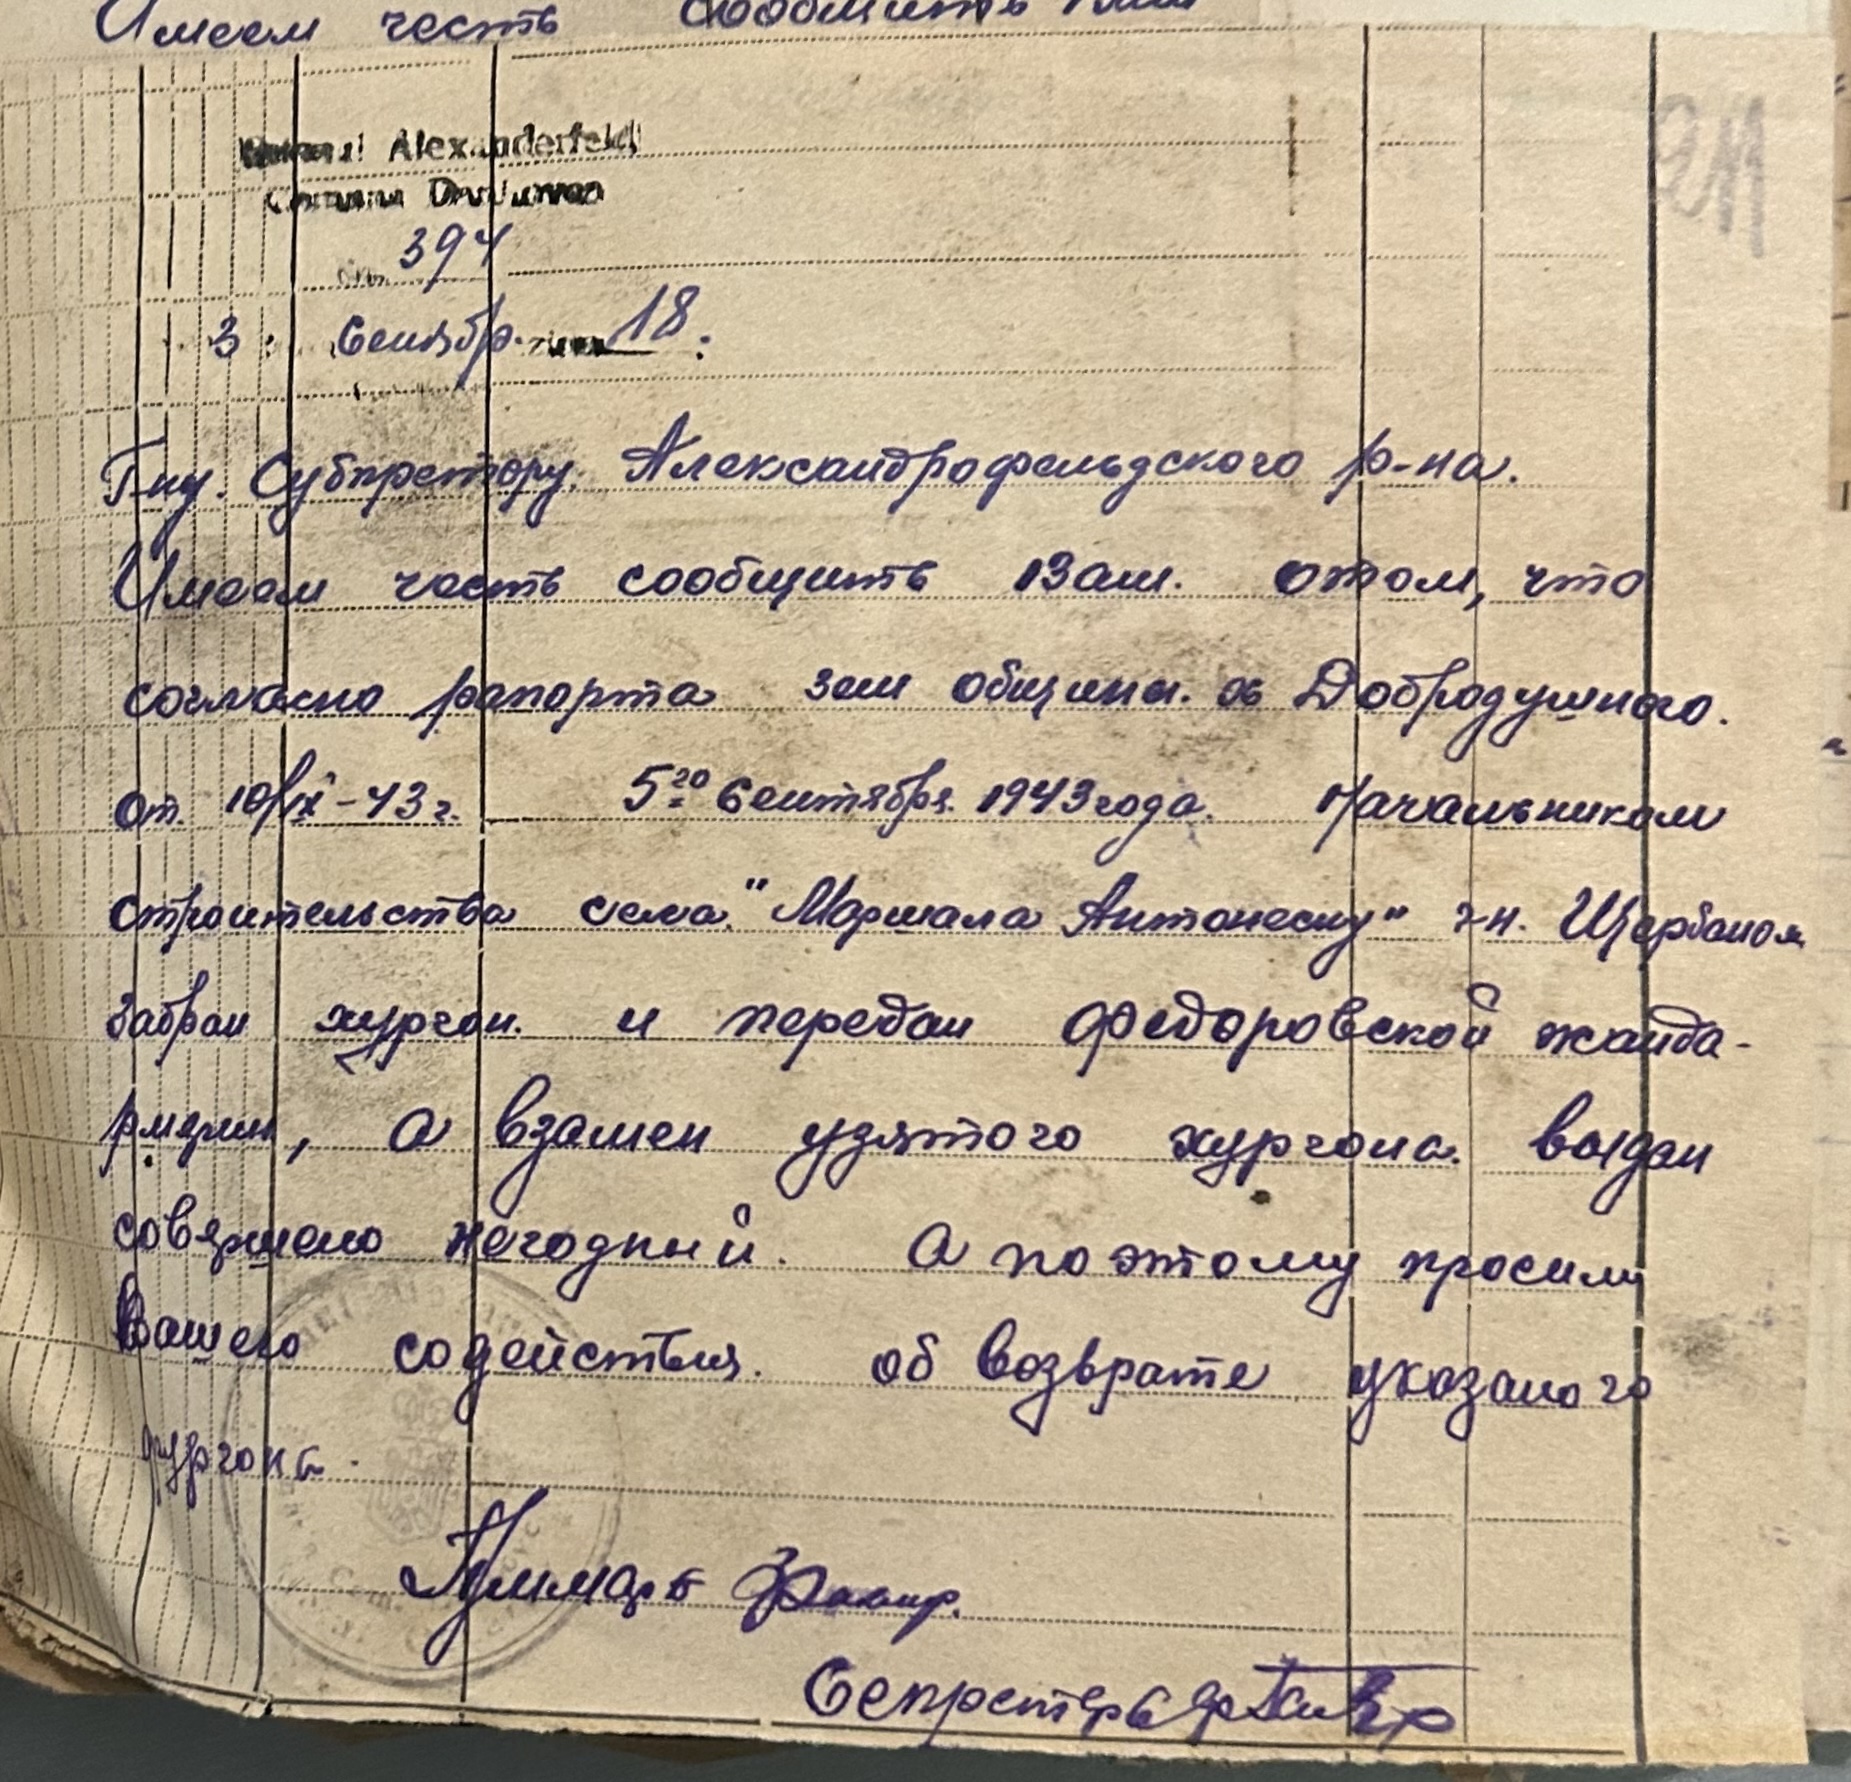 Имеем честь сообщить Вам
Alexanderfeld
394
3 Сентябр. 18.
Г-ну. Субпретору. Александрофельдского р-на.
Имеем честь сообщить Вам. отом, что
согласно рапорта зем общины. Добродушного.
от. 10/IX-43 г. 5го Сентября 1943 года. Начальником
строительства села. "Маршала Антонеску" г-н. Щербаном
забран хургон. и передан Федоровской жанда-
рмерии, а взамен удятого хургона. выдан
совершено негодный. А поэтому просим
Вашего содействия. об возврате указаного
хургона.
Примарь
Секретарь